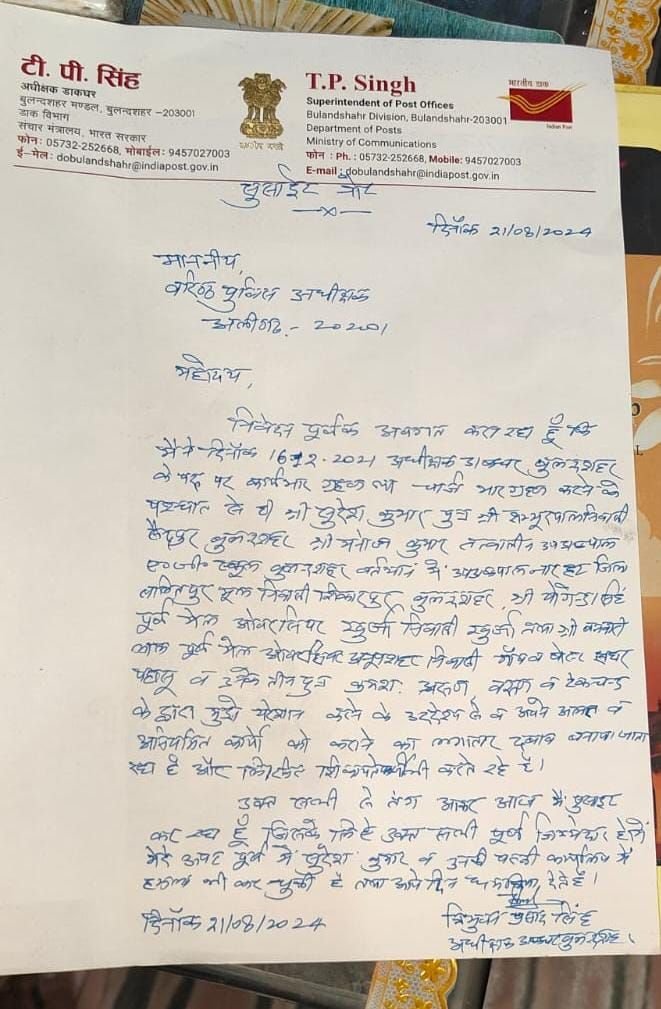 टी. पी. सिंह
अधीक्षक डाकघर
बुलन्दशहर मण्डल, बुलन्दशहर –203001
डाक विभाग
संचार मंत्रालय, भारत सरकार
फोन: 05732-252668, मोबाईल: 9457027003
ई-मेल: dobulandshahr@indiapost.gov.in
सत्यमेव जयते
T.P. Singh
Superintendent of Post Offices
Bulandshahr Division, Bulandshahr-203001
Department of Posts
Ministry of Communications
फोन : Ph. : 05732-252668, Mobile: 9457027003
E-mail : dobulandshahr@indiapost.gov.in
भारतीय डाक
India Post
सुसाईट नोट
दिनाँक 21/08/2024
माननीय,
वरिष्ठ पुलिस अधीक्षक
अलीगढ़ -
महोदय,
निवेदन पूर्वक अवगत करा रहा हूँ कि
मैंने दिनाँक 2021 अधीक्षक डाकघर, बुलन्दशहर
के पद पर कार्यभार ग्रहण चार्ज भार ग्रहण करने के
पश्चात से ही श्री सुरेश कुमार पुत्र श्री
बुलन्दशहर श्री मनोज कुमार तत्कालीन उपडाकपाल
बुलन्दशहर वर्तमान में उपडाकपाल जिला
ललितपुर मूल निवासी शिकारपुर, बुलन्दशहर, श्री योगेन्द्र सिंह
पूर्व मेल ओवरसियर खुर्जा निवासी खुर्जा तथा श्री
लाल पूर्व मेल ओवरसियर अनूपशहर निवासी
पहासू व उनके तीन पुत्र क्रमश: अरुण, व टेकचन्द
के द्वारा मुझे परेशान करने के उद्देश्य से व अपने व
अनियमित कार्यों को कराने का लगातार दबाव बनाया जाता
रहा है और करते रहे हैं।
उक्त सभी से तंग आकर आज मैं सुसाइट
कर रहा हूँ जिसके लिए उक्त सभी पूर्ण जिम्मेदार होंगे
मेरे ऊपर पूर्व में सुरेश कुमार व उनकी पत्नी कार्यालय में
हमला भी कर चुकी है तथा आये दिन देते हैं।
दिनाँक 21/08/2024
त्रिभुवन प्रसाद सिंह
अधीक्षक डाकघर बुलन्दशहर।